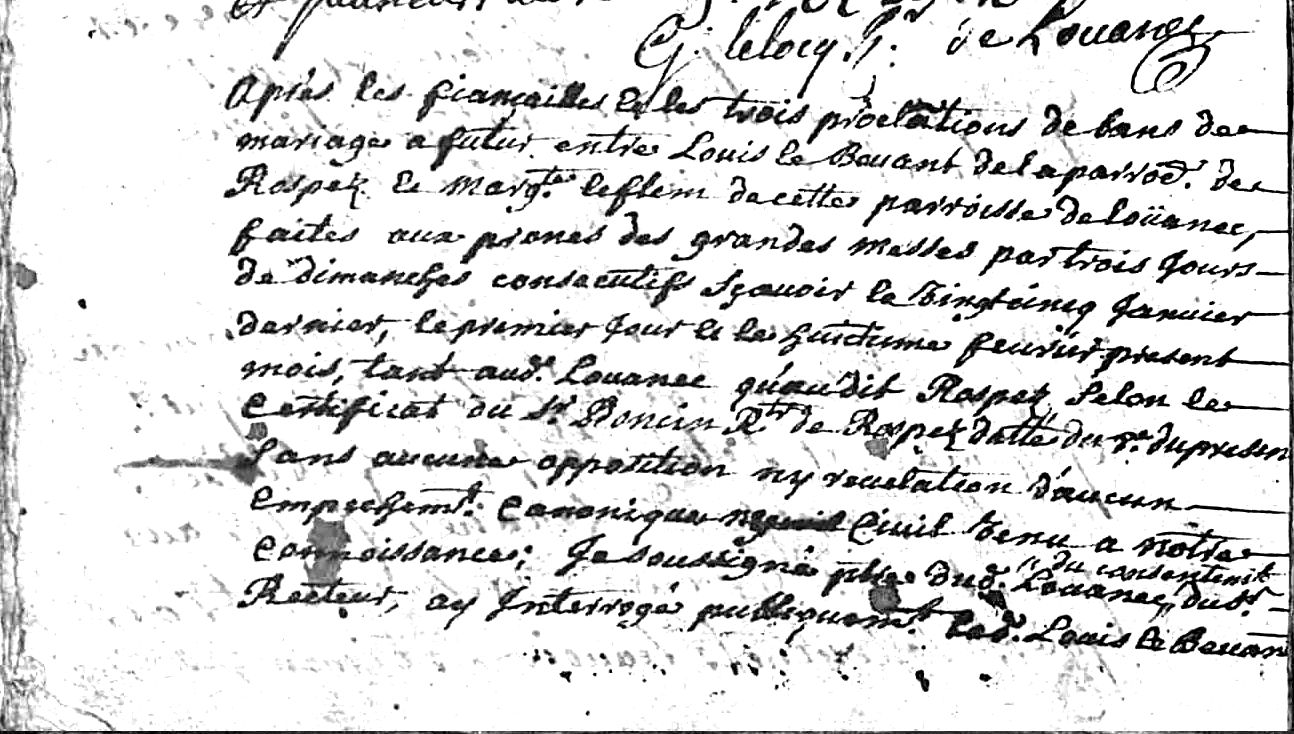 G: lelocq Sr. de Louanec
Après les fiançailles & les trois proclãtions de bans de
mariage a futur entre Louis le Bouant de la parrod. de
Rospez & Margte. leflem de cette parroisse de loüanec,
faites aux prones des grandes Messes par trois Jours
de dimanches consecutifs Sçavoir le vingtcinq Janvier
dernier, le premier Jour & le huitieme fevrier present
mois, tant aud. Louanec qu'audit Rospez Selon le
Certificat du Sr. Boncin Rtr de Rospez datte du 7e. du presen
Sans aucune opposition ny revelation d'aucun
Empechemt. Canonique ny Civil venu a notre
connoissance; Je soussigné pbre dud. Louanec, du consentemt dudt.
Recteur, ay Interrogé publiquemt. led. Louis le Bouan